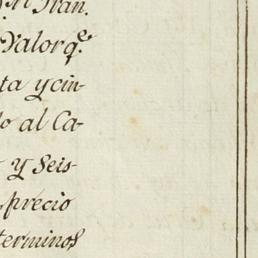 Fran.
Valor q.e
ta y cin-
lo al Ca-
y Seis-
precio
terminos